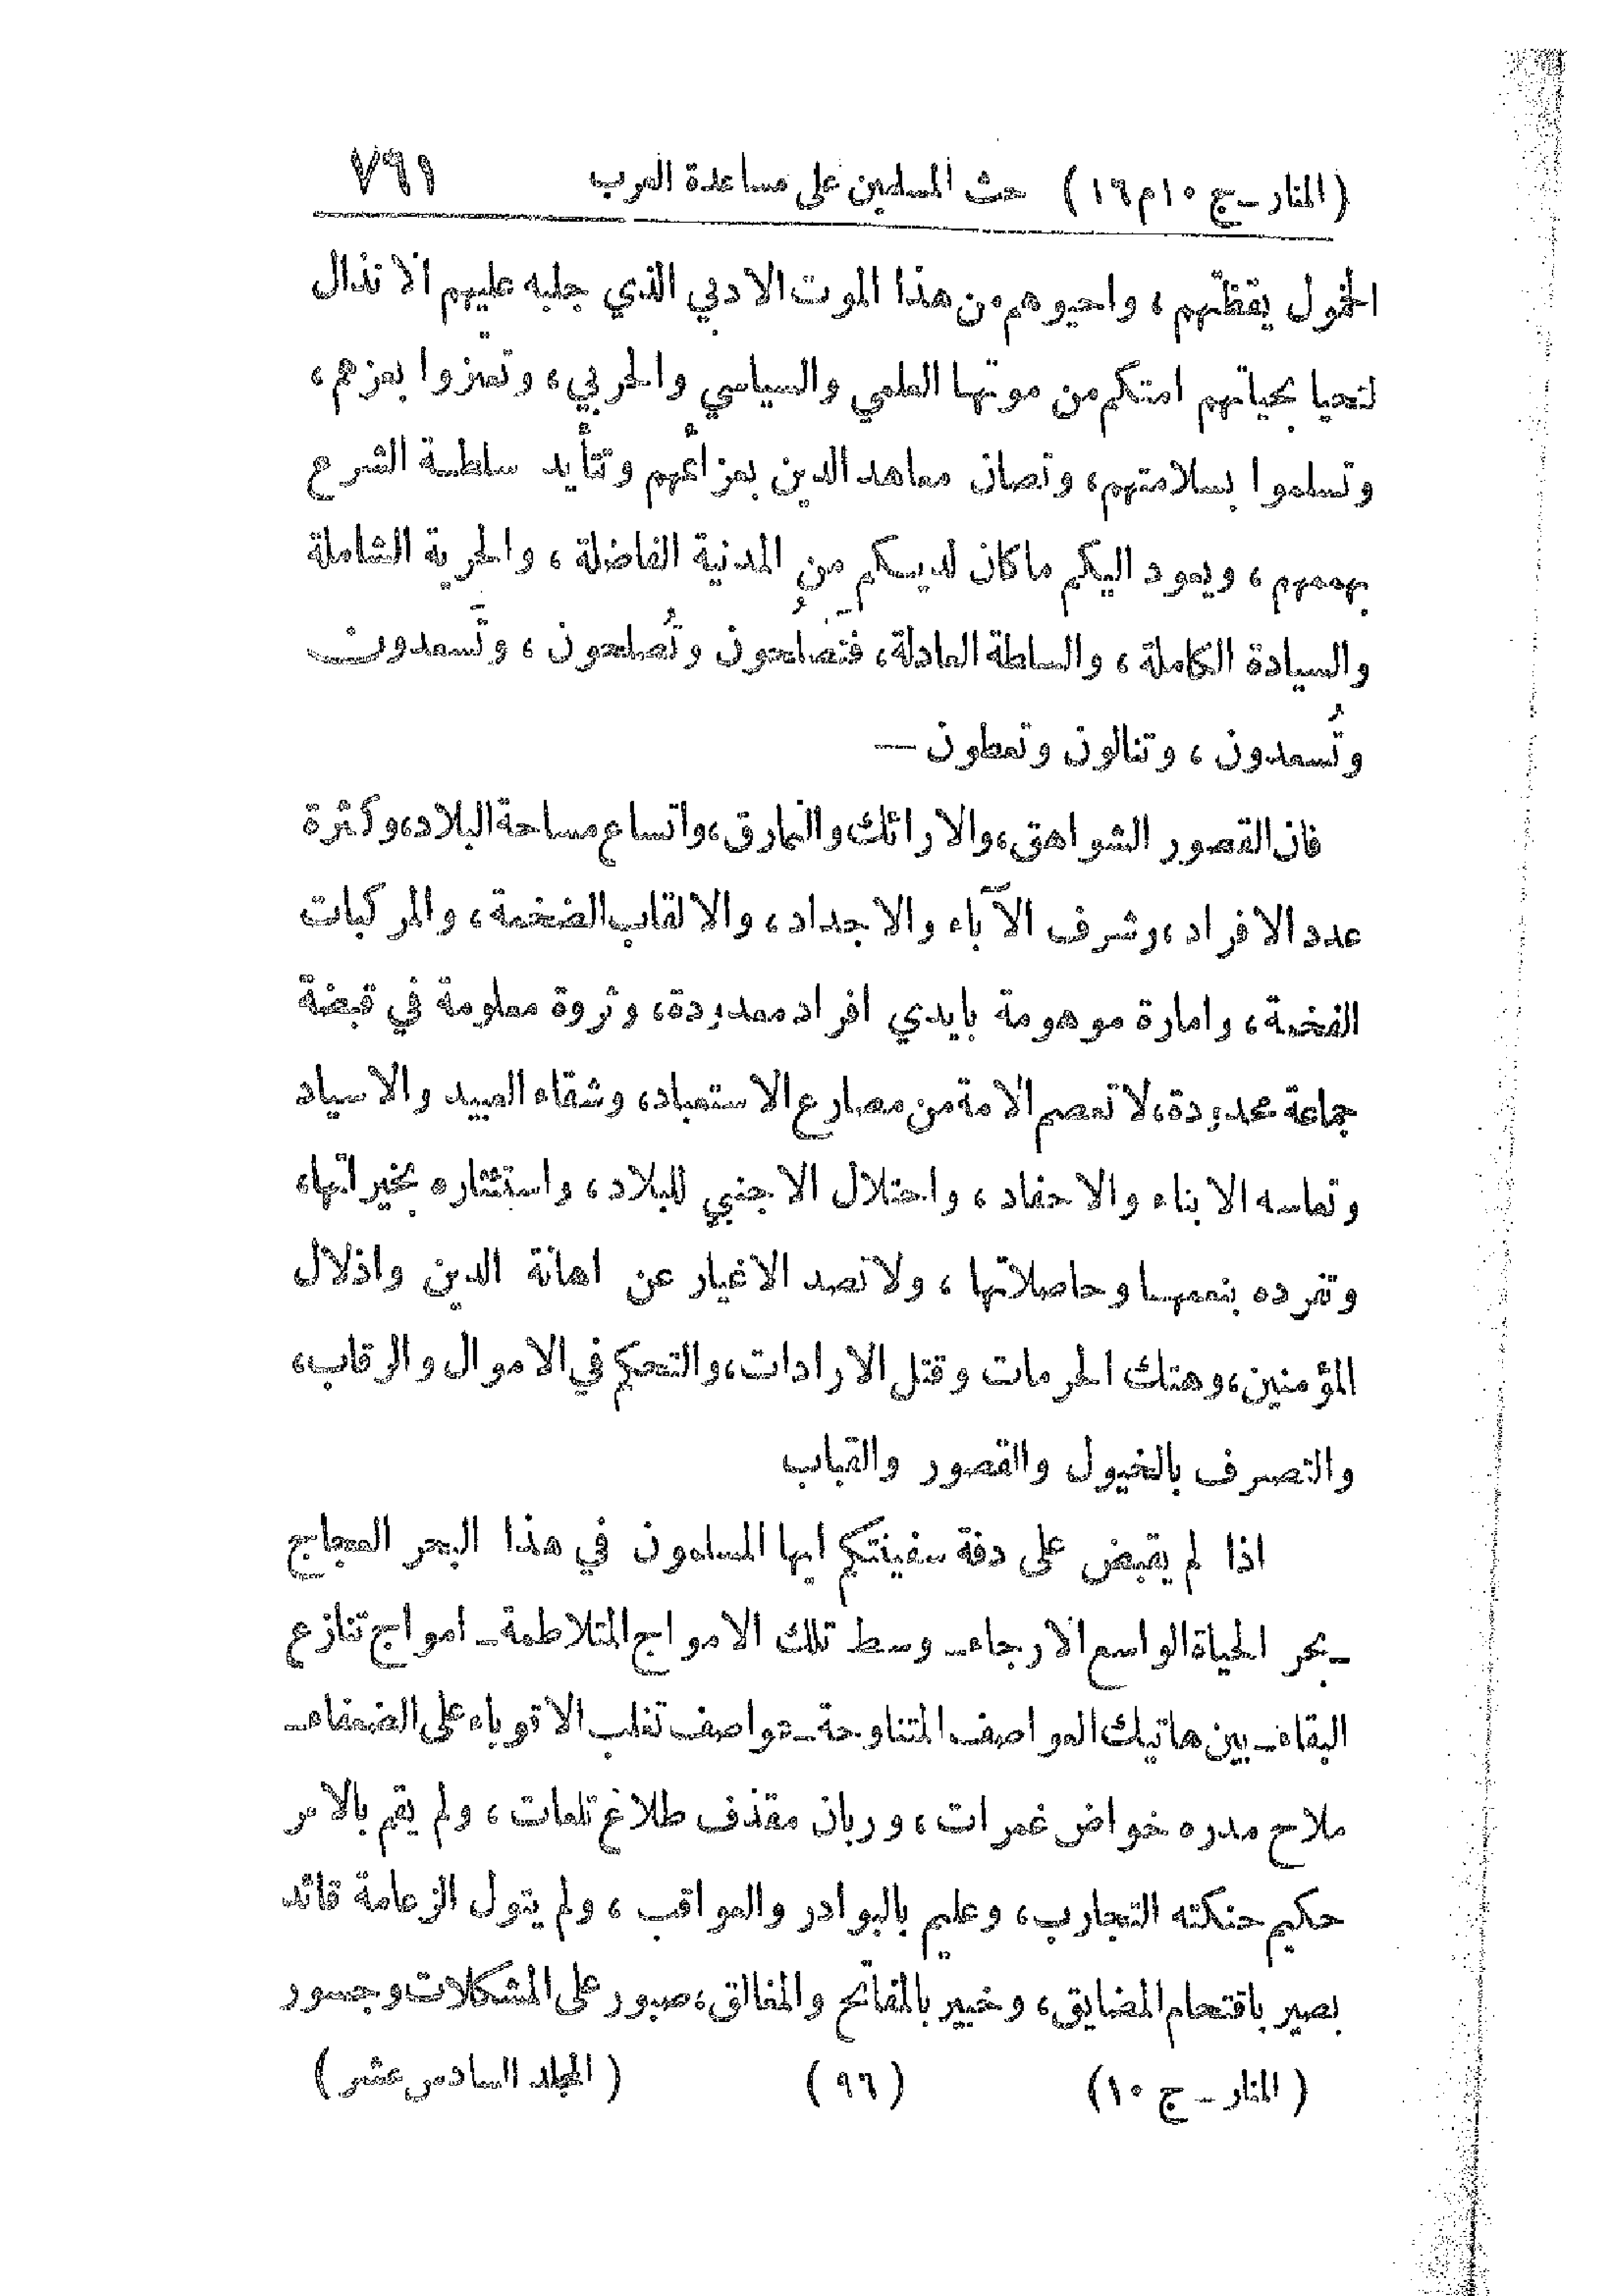 (المنار ـ ج ١٠ م ١٦) حث المسلمين على مساعدة العرب ٧٦١
الخمول يقظتهم ، واحيوهم من هذا الموت الادبي الذي جلبه عليهم الانذال
لتحيا بحياتهم امتكم من موتها العلمي والسياسي والحربي ، وتعتزوا بعزهم ،
وتسلموا بسلامتهم ، وتصان معاهد الدين بعزائمهم وتتأيد سلطة الشرع
بهممهم ، ويعود اليكم ما كان لديكم من المدنية الفاضلة ، والحرية الشاملة
والسيادة الكاملة ، والسلطة العادلة ، فتَصلُحون وتُصلحون ، وتَسعدون
وتُسعدون ، وتنالون وتعطون —
فان القصور الشواهق ، والارائك والنمارق ، واتساع مساحة البلاد ، وكثرة
عدد الافراد ، وشرف الآباء والاجداد ، والالقاب الضخمة ، والمركبات
الفخمة ، وامارة موهومة بايدي افراد معدودة ، وثروة معلومة في قبضة
جماعة محدودة ، لا تعصم الامة من مصارع الاستعباد ، وشقاء العبيد والاسياد
وتعاسه الابناء والاحفاد ، واحتلال الاجنبي للبلاد ، واستئثاره بخيراتها ،
وتفرده بنعمها وحاصلاتها ، ولا تصد الاغيار عن اهانة الدين واذلال
المؤمنين ، وهتك الحرمات وقتل الارادات ، والتحكم في الاموال والرقاب ،
والتصرف بالخيول والقصور والقباب
اذا لم يقبض على دفة سفينتكم ايها المسلمون في هذا البحر العجاج
ـ بحر الحياة الواسع الارجاء ـ وسط تلك الامواج المتلاطمة ـ امواج تنازع
البقاء ـ بين هاتيك العواصف المتناوحة ـ عواصف تغلب الاقوياء على الضعفاء ـ
ملاح مدره خواض غمرات ، وربان مقذف طلاع تلعات ، ولم يقم بالامر
حكيم حنكته التجارب ، وعليم بالبوادر والعواقب ، ولم يتول الزعامة قائد
بصير باقتحام المضايق ، وخبير بالمفاتح والمغالق ، صبور على المشكلات وجسور
(المنار ـ ج ١٠) (٩٦) (المجلد السادس عشر)